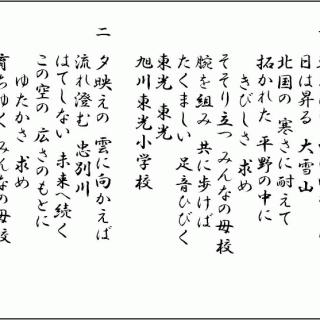 日は昇る 大雪山
北国の 寒さに耐えて
拓かれた 平野の中に
きびしさ 求め
そそり立つ みんなの母校
腕を組み 共に歩けば
たくましい 足音ひびく
東光 東光
旭川東光小学校
二 夕映えの 雲に向かえば
流れ澄む 忠別川
はてしない 未来へ続く
この空の 広さのもとに
ゆたかさ 求め
育ちゆく みんなの母校